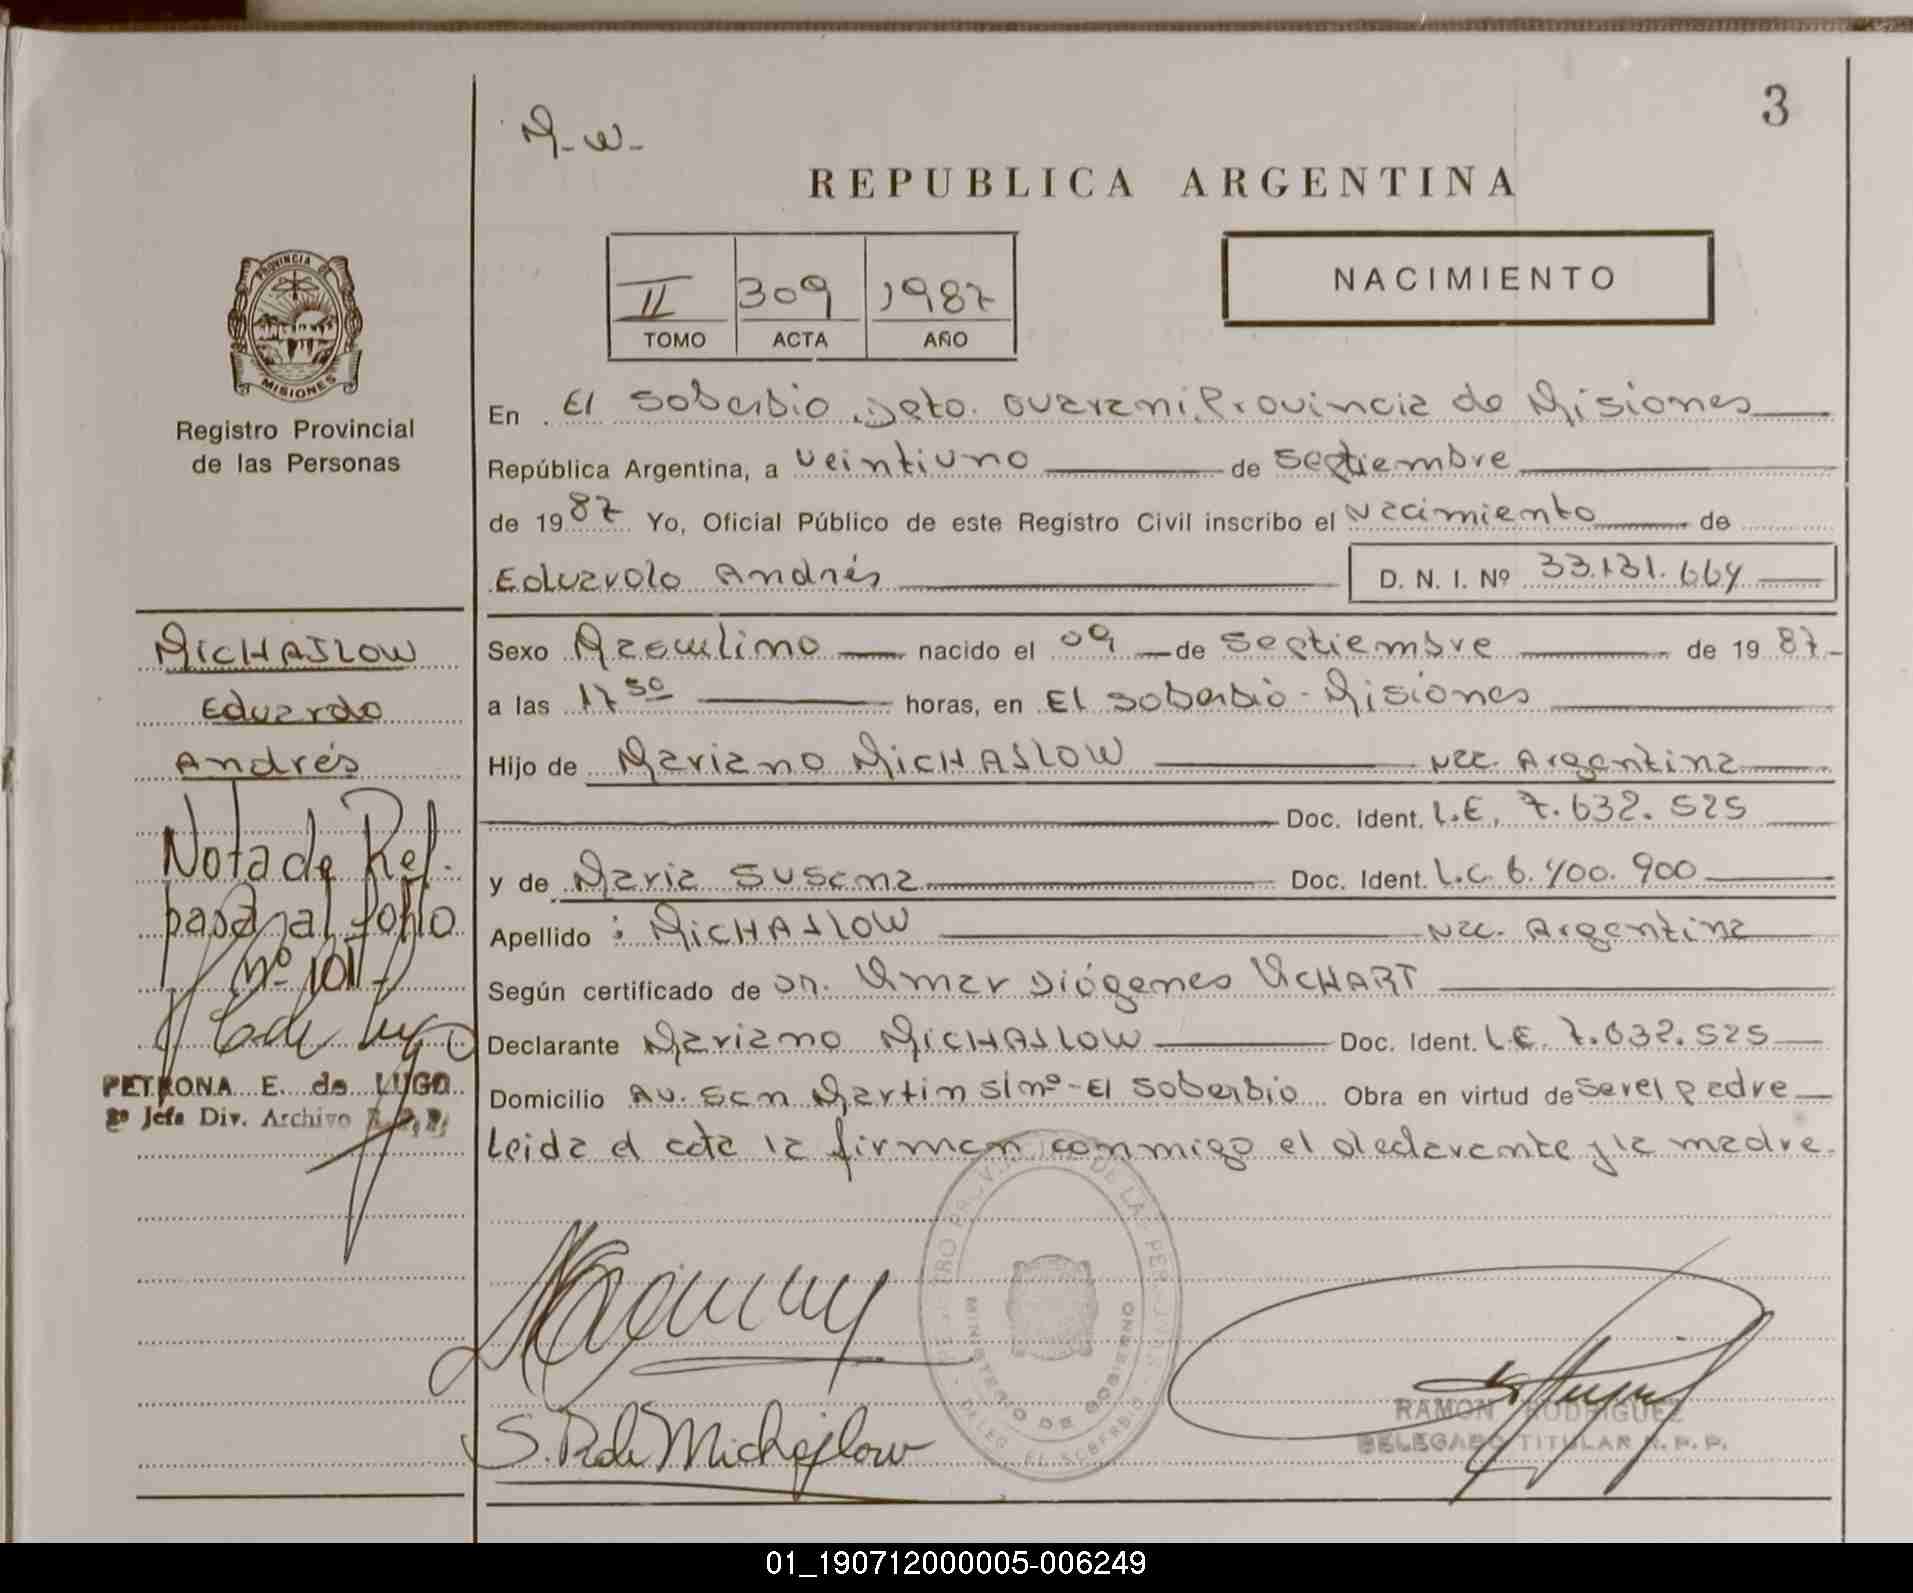 3
M-W-
REPUBLICA ARGENTINA
II 309 1987
TOMO ACTA AÑO
NACIMIENTO
PROVINCIA DE
MISIONES
Registro Provincial
de las Personas
En El Soberbio, Dpto. Guarani, Provincia de Misiones
República Argentina, a veintiuno de septiembre
de 1987 Yo, Oficial Público de este Registro Civil inscribo el Nacimiento de
Eduardo Andrés D. N. I. Nº 33.131.664
Sexo Masculino nacido el 09 de septiembre de 1987-
a las 17 50 horas, en El Soberbio - Misiones
Hijo de Mariano MICHAJLOW Nac. Argentina
Doc. Ident. L.E. 7.632.525
y de Maria Susana Doc. Ident. L.C. 6.400.900
Apellido : MICHAJLOW Nac. Argentina
Según certificado de Dr. Omar Diógenes VICHART
Declarante Mariano MICHAJLOW Doc. Ident. L.E. 7.632.525
Domicilio Av. San Martin s/nº - El Soberbio Obra en virtud de ser el padre
Leida el acta la firman conmigo el declarante y la madre.
MICHAJLOW
Eduardo
Andrés
Nota de Ref.
pasa al folio
nº 101-
PETRONA E. de LUGO
2º Jefa Div. Archivo R.P.P.
S. P. de Michajlow
MINISTERIO DE GOBIERNO
DELEG. EL SOBERBIO
RAMON RODRIGUEZ
DELEGADO TITULAR R. P. P.
01_190712000005-006249